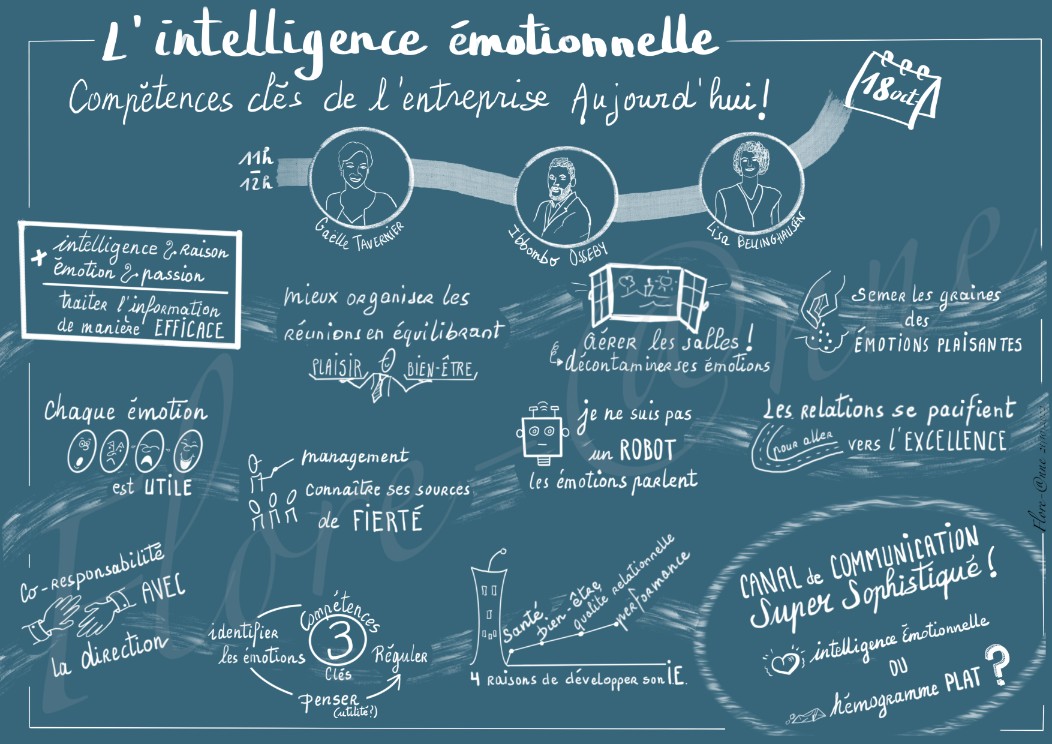 L'intelligence émotionnelle
Compétences clés de l'entreprise Aujourd'hui!
18 oct.
11h
12h
Gaëlle TAVERNIER
Ibbombo OSSEBY
Lisa BELLINGHAUSEN
+ intelligence & raison
émotion & passion
traiter l'information
de manière EFFICACE
mieux organiser les
réunions en équilibrant
PLAISIR, BIEN-ÊTRE,
Aérer les salles!
décontaminer ses émotions
Semer les graines
des
ÉMOTIONS PLAISANTES
Chaque émotion
est UTILE
management
connaître ses sources
de FIERTÉ
je ne suis pas
un ROBOT
les émotions parlent
Les Relations se pacifient
pour aller vers l'EXCELLENCE
Co-responsabilité
AVEC
la direction
Compétences
3
Clés
identifier
les émotions
Réguler
penser
(utilité?)
Santé,
bien-être,
qualité relationnelle
performance
4 raisons de développer son IE.
CANAL de COMMUNICATION
Super Sophistiqué!
intelligence émotionnelle
OU
hémogramme PLAT ?
Flore-@nne
Flore-@nne